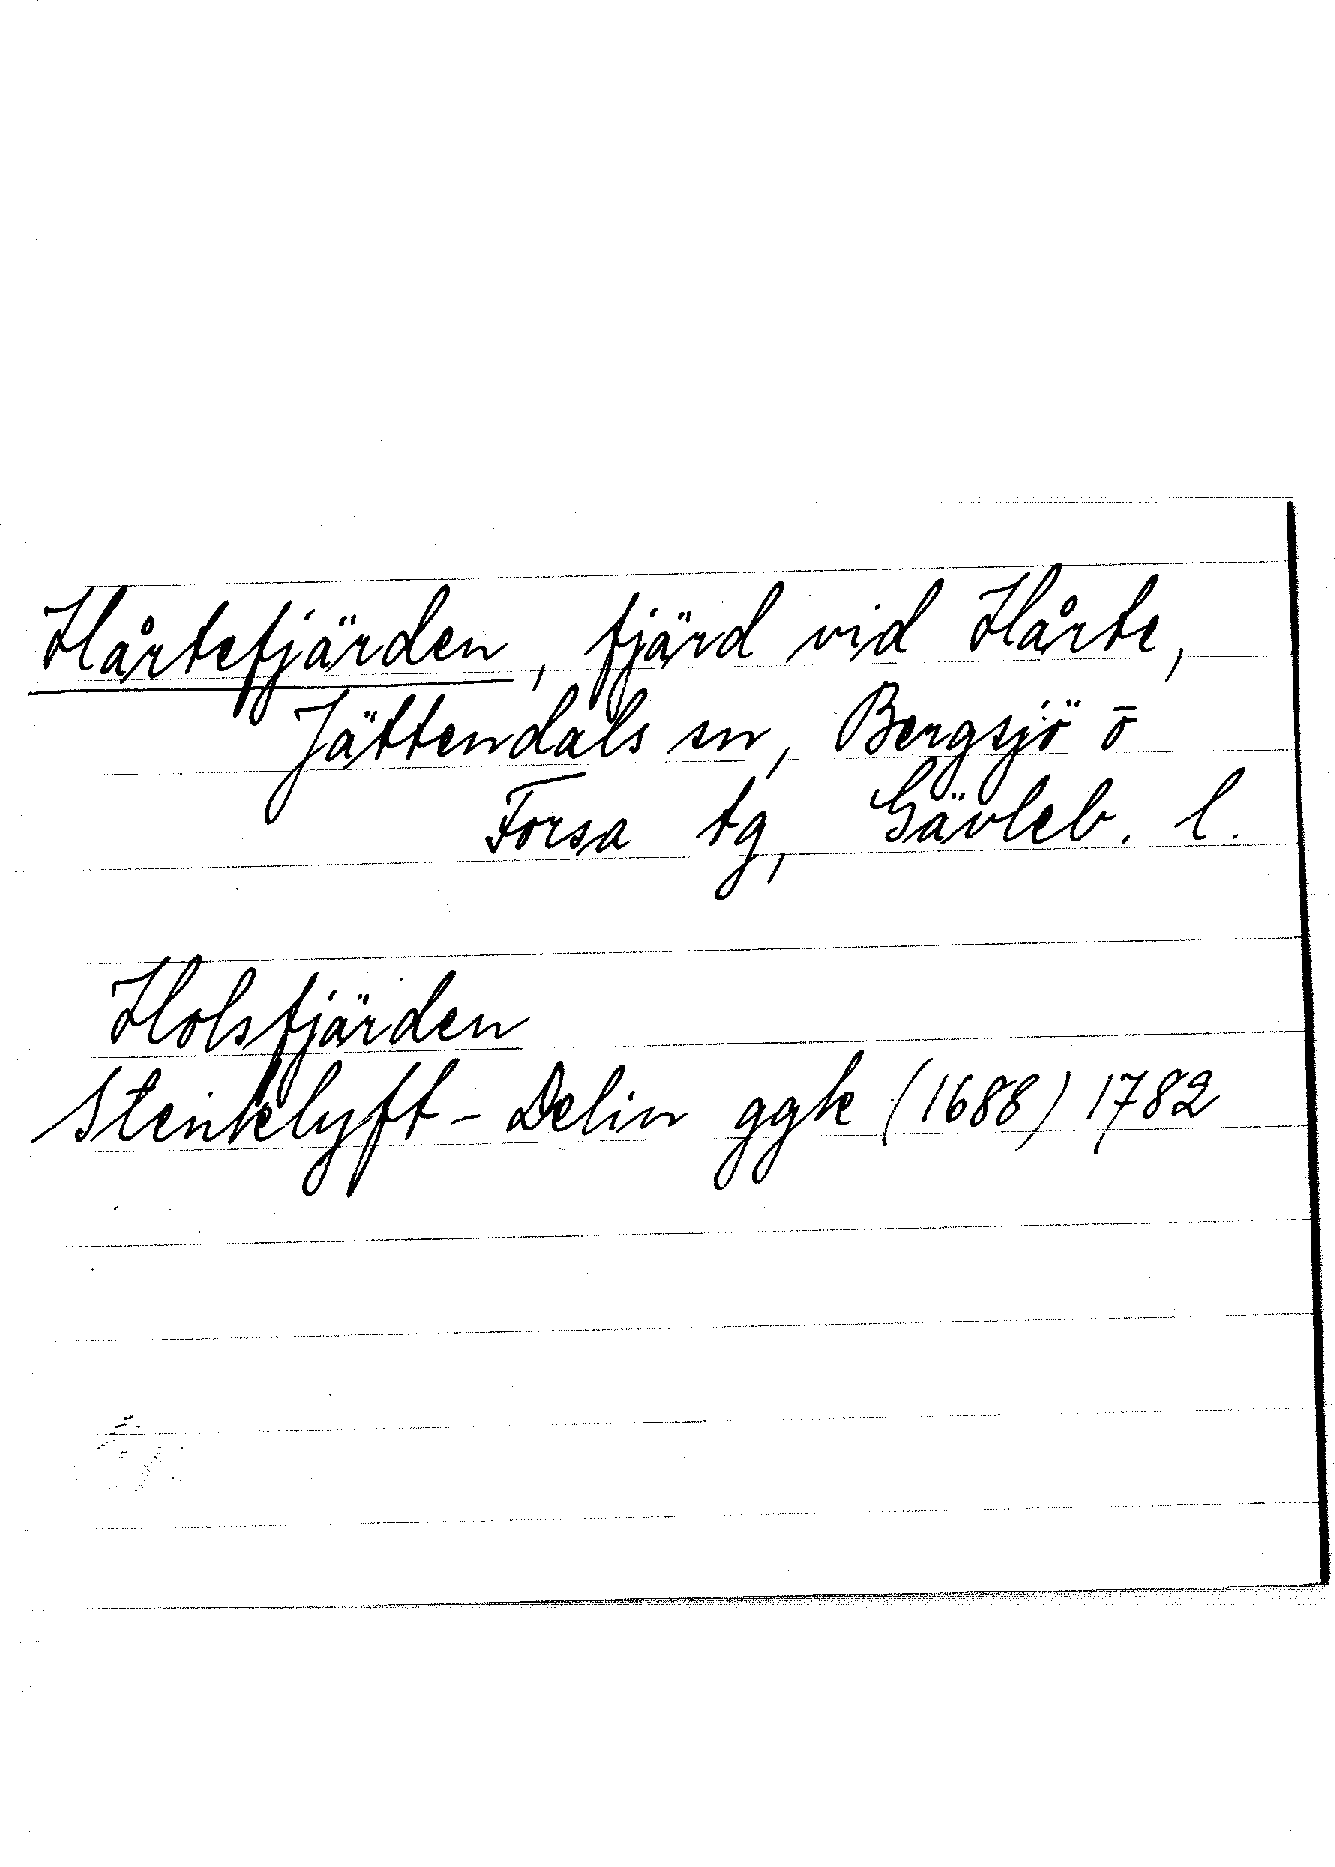 Hårtefjärden, fjärd vid Hårte,
Jättendals sn, Bergsjö o
Forsa tg, Gävleb. l.
Holsfjärden
Stenklyft - Delin ggk (1688) 1782